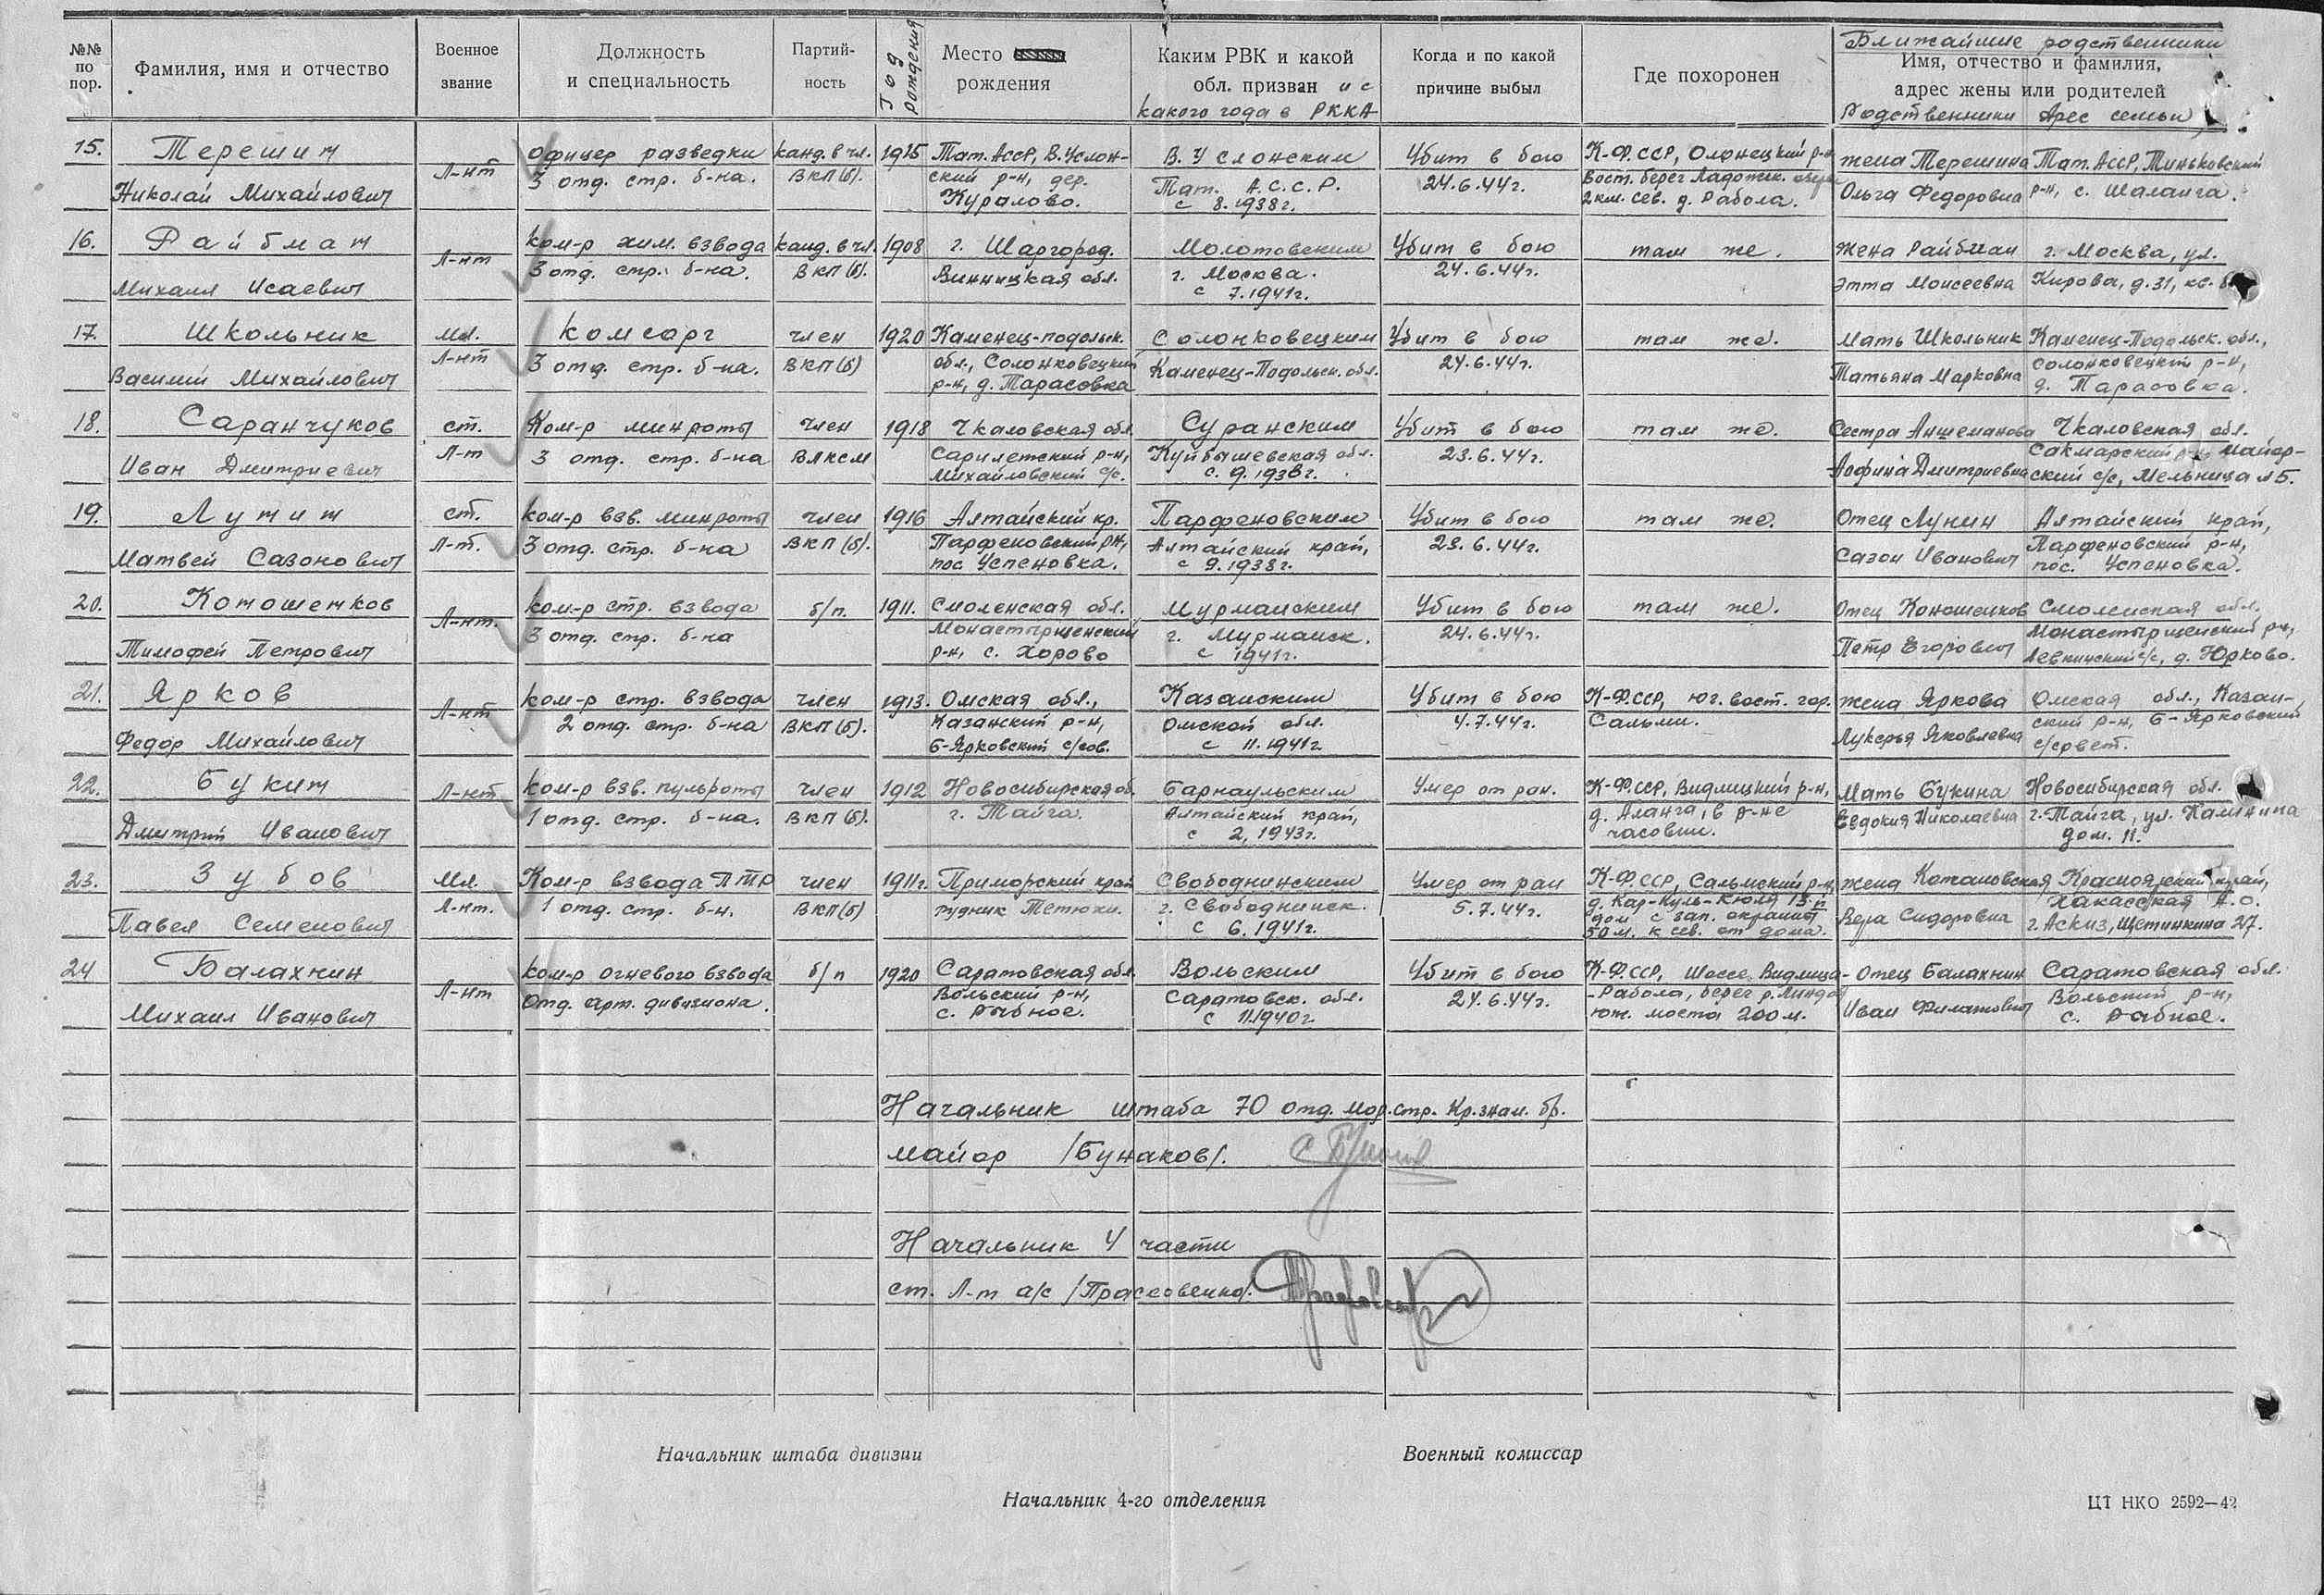 №№ по пор.
Фамилия, имя и отчество
Военное звание
Должность и специальность
Партийность
Год рождения
Место рождения
Каким РВК и какой обл. призван и с какого года в РККА
Когда и по какой причине выбыл
Где похоронен
Ближайшие родственники
Имя, отчество и фамилия,
адрес жены или родителей
Родственники Адрес семьи
15. Терешин Николай Михайлович
Л-нт
офицер разведки
3 отд. стр. б-на.
канд. в чл. ВКП(б).
1915
Тат. АССР, В. Услонский р-н, дер. Куралово.
В. Услонским
Тат. А.С.С.Р.
с 8.1938г.
Убит в бою
24.6.44г.
К-Ф.ССР, Олонецкий р-н
Вост. берег Ладожск. озера
2 км. сев. д. Рабола.
жена Терешина
Ольга Федоровна
Тат. АССР, Тиньковский
р-н, с. Шаланга.
16. Райбман Михаил Исаевич
Л-нт
ком-р хим. взвода
3 отд. стр. б-на.
канд. в чл. ВКП(б).
1908
г. Шаргород.
Винницкая обл.
Молотовским
г. Москва.
с 7.1941г.
Убит в бою
24.6.44г.
там же.
жена Райбман
Этта Моисеевна
г. Москва, ул.
Кирова, д. 31, кв.
17. Школьник Василий Михайлович
Мл. Л-нт
комсорг
3 отд. стр. б-на.
член ВКП(б)
1920
Каменец-подольск.
обл., Солонковецкий
р-н, д. Тарасовка
Солонковецким
Каменец-Подольск. обл.
Убит в бою
24.6.44г.
там же.
Мать Школьник
Татьяна Марковна
Каменец-Подольск. обл.,
Солонковецкий р-н,
д. Тарасовка.
18. Саранчуков Иван Дмитриевич
ст. Л-т
Ком-р минроты
3 отд. стр. б-на
член ВЛКСМ
1918
Чкаловская обл.
Сарилетский р-н,
Михайловский с/с.
Суранским
Куйбышевская обл.
с. 9.1938г.
Убит в бою
23.6.44г.
там же.
Сестра Аншеманова
Дмитриевна
Чкаловская обл.
Сакмарский р-н, Майорский с/с, Мельница №5.
19. Лунин Матвей Сазонович
ст. Л-т.
ком-р взв. минроты
3 отд. стр. б-на
член ВКП(б).
1916
Алтайский кр.
Парфеновский рн,
пос Успеновка.
Парфеновским
Алтайский край,
с 9.1938г.
Убит в бою
23.6.44г.
там же.
Отец Лунин
Сазон Иванович
Алтайский край,
Парфеновский р-н,
пос. Успеновка.
20. Коношенков Тимофей Петрович
Л-нт.
ком-р стр. взвода
3 отд. стр. б-на
б/п.
1911.
Смоленская обл.
Монастырщенский
р-н, с. Хорово
Мурманским
г. Мурманск.
с 1941г.
Убит в бою
24.6.44г.
там же.
Отец Коношенков
Петр Егорович
Смоленская обл.
Монастырщенский рн,
Левкинский с/с, д. Юрково.
21. Ярков Федор Михайлович
Л-нт
ком-р стр. взвода
2 отд. стр. б-на
член ВКП(б).
1913.
Омская обл.,
Казанский р-н,
Б-Ярковский с/сов.
Казанским
Омской обл.
с 11.1941г.
Убит в бою
4.7.44г.
К-Ф.ССР, юг. вост. гор.
Сальми.
жена Яркова
Лукерья Яковлевна
Омская обл., Казанский р-н, Б-Ярковский
с/совет.
22. Букин Дмитрий Иванович
Л-нт
ком-р взв. пульроты
1 отд. стр. б-на.
член ВКП(б).
1912
Новосибирская об.
г. Тайга.
Барнаульским
Алтайский край,
с 2, 1943г.
Умер от ран.
К-Ф.ССР, Видлицкий р-н,
д. Аланга, в р-не
часовни.
Мать Букина
Евдокия Николаевна
Новосибирская обл.
г. Тайга, ул. Калинина
дом. 11.
23. Зубов Павел Семенович
Мл. Л-нт.
Ком-р взвода ПТР
1 отд. стр. б-н.
член ВКП(б)
1911г.
Приморский край
рудник Тетюхи.
Свободнинским
г. Свободнинск.
с 6.1941г.
Умер от ран
5.7.44г.
К-Ф.ССР, Сальмский р-н,
д. Кар-Куль-Кюля 13-й
дом с зап. окраины
50 м. к сев. от дома.
жена Комановская
Вера Сидоровна
Красноярский край,
Хакасская А.О.
г. Аскиз, Щетинкина 27.
24 Балахнин Михаил Иванович
Л-нт
ком-р огневого взвода
Отд. арт. дивизиона.
б/п
1920
Саратовская обл.
Вольский р-н,
с. Рыбное.
Вольским
Саратовск. обл.
с 11.1940г.
Убит в бою
24.6.44г.
К-Ф.ССР, Шоссе Видлица-
-Рабола, берег р.
юж. моста 200 м.
Отец Балахнин
Иван Филатович
Саратовская обл.
Вольский р-н,
с. Рабное.
Начальник штаба 70 отд. мор. стр. Кр. знам. бр.
майор /Бунаков/.
Начальник 4 части
ст. Л-т а/с /Прасковенко/.
Начальник штаба дивизии
Военный комиссар
Начальник 4-го отделения
ЦТ НКО 2592—42